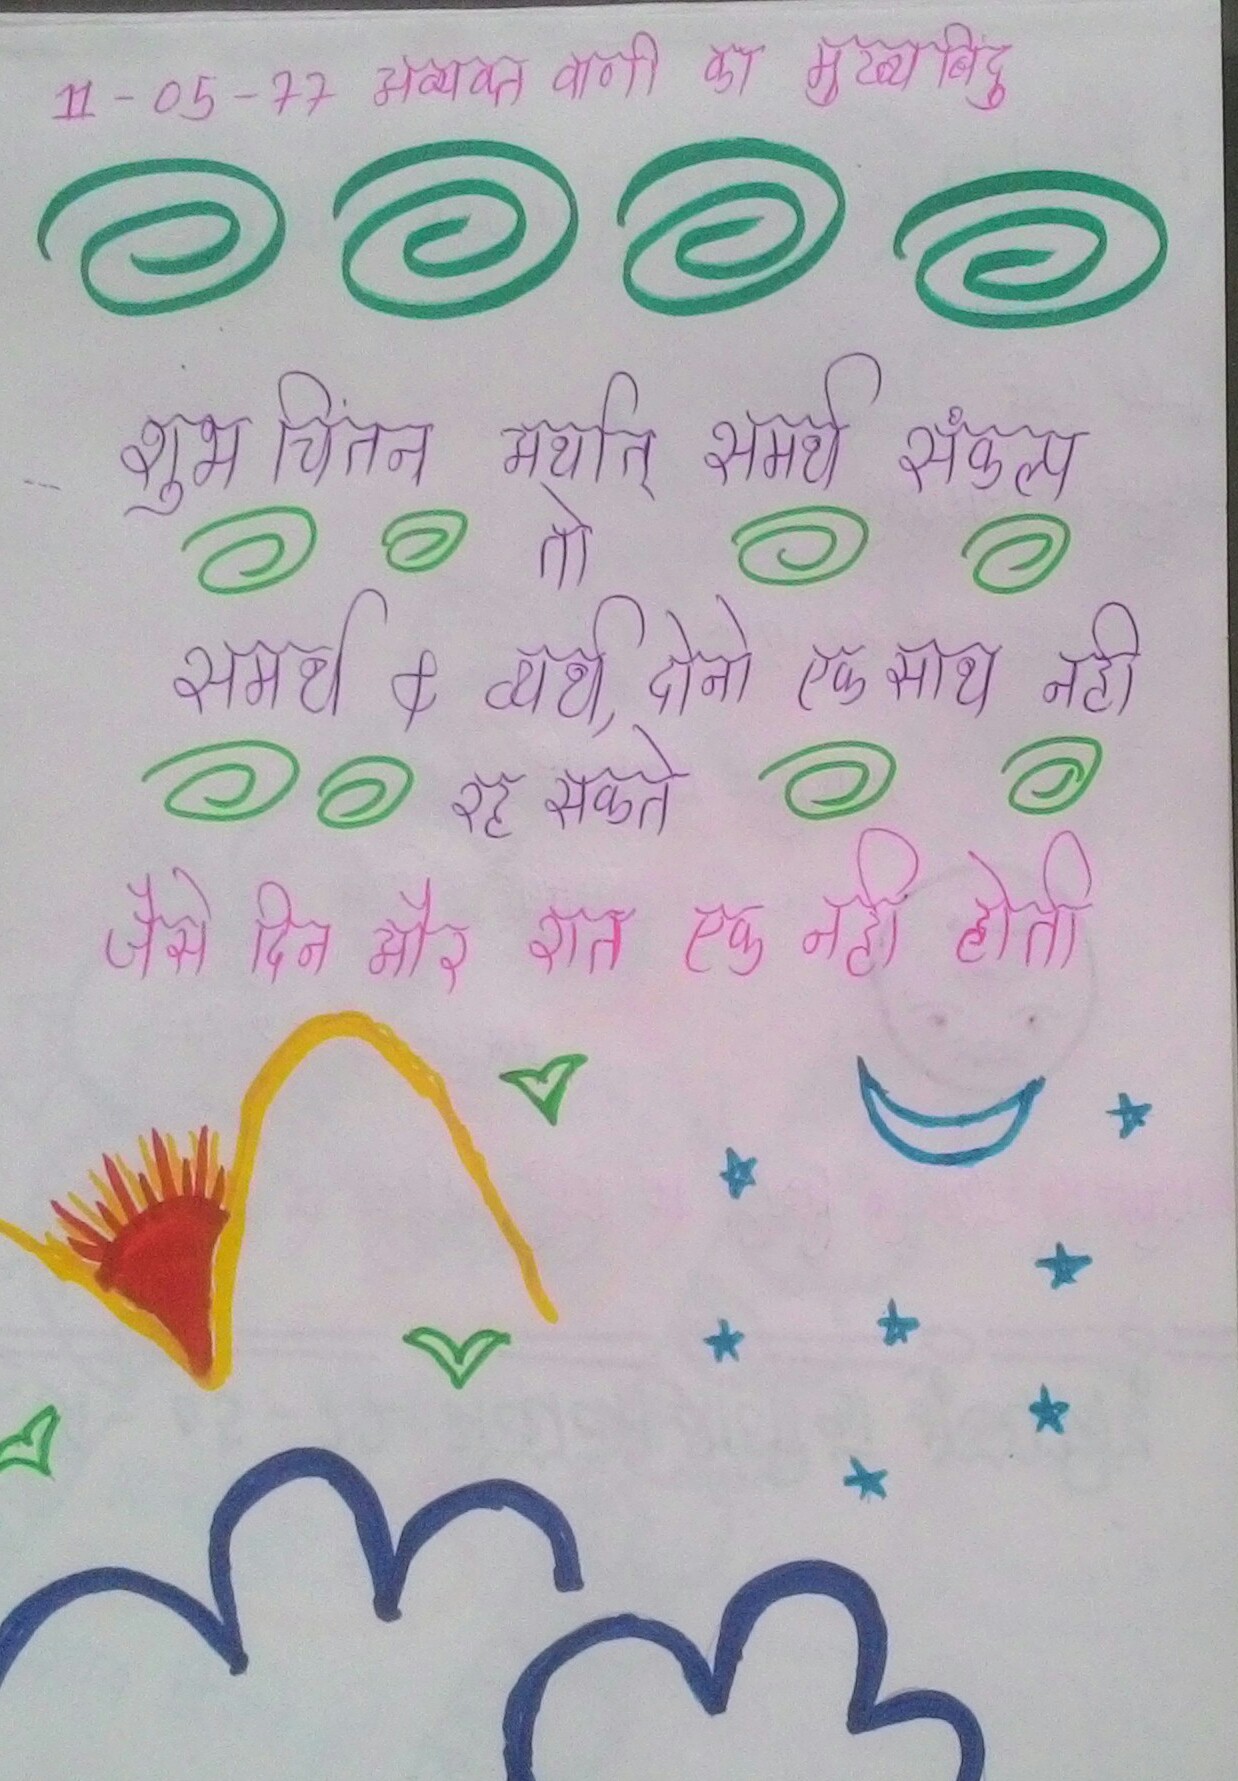 11-05-77 अव्यक्त वानी का मुख्य बिंदु
शुभ चिंतन अर्थात् समर्थ संकल्प
तो
समर्थ & व्यर्थ, दोनो एक साथ नही
रह सकते
जैसे दिन और रात एक नही होती